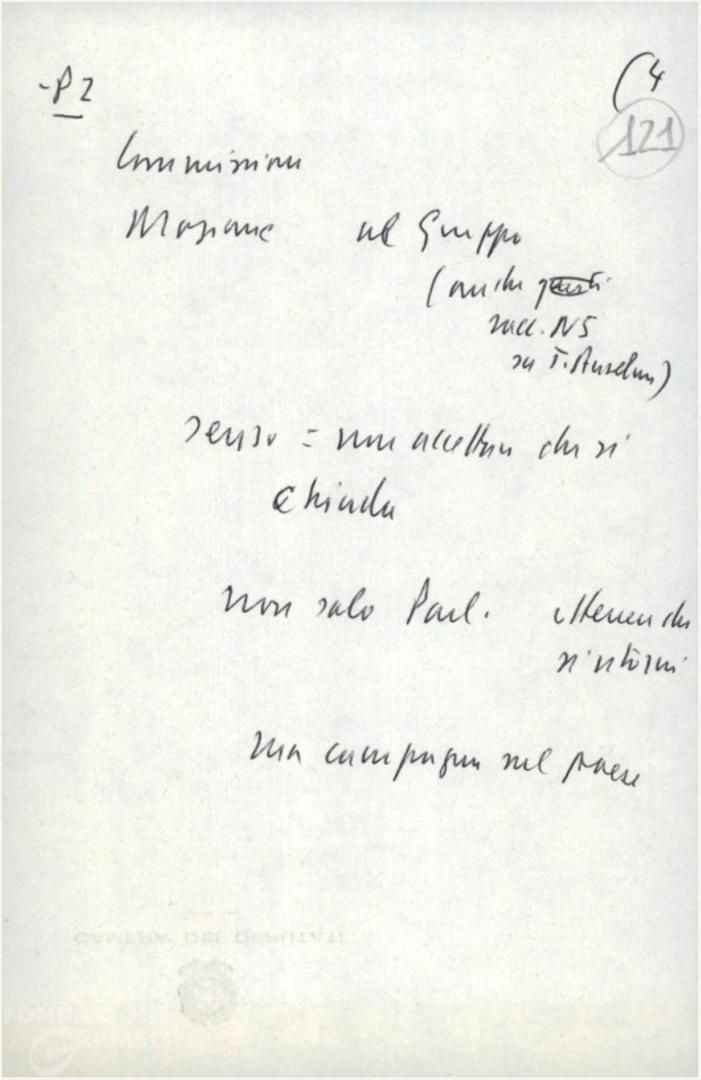 - P2
(4
121
Commissione
Mozione al Gruppo
(anche questi
racc. N5
su T. Anselmi)
senso = non accettare che si
chiuda
non solo Parl. ottenere che
si ritorni
ma campagna nel paese
CAMERA DEI DEPUTATI